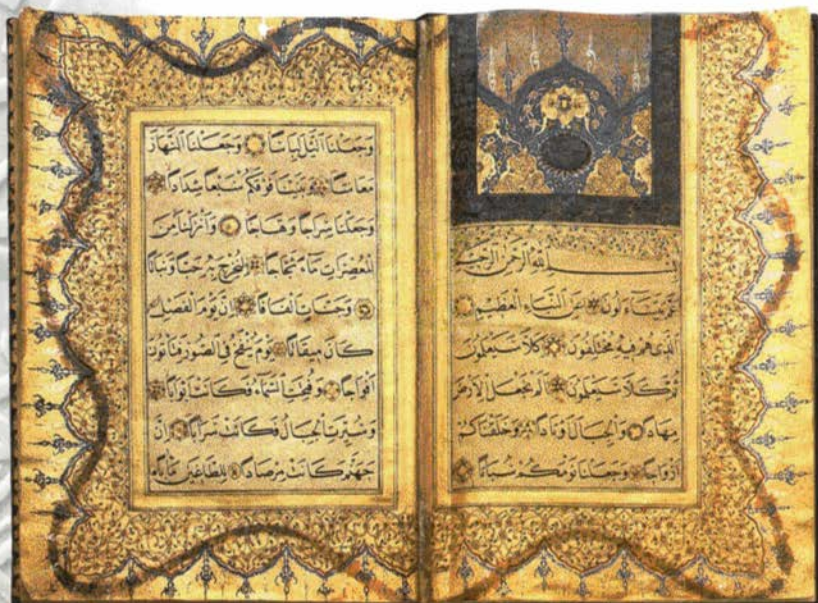 بسم الله الرحمن الرحيم
عَمَّ يَتَسَاءَلُونَ عَنِ النَّبَاءِ الْعَظِيمِ
الَّذِي هُمْ فِيهِ مُخْتَلِفُونَ كَلَّا سَيَعْلَمُونَ
ثُمَّ كَلَّا سَيَعْلَمُونَ أَلَمْ نَجْعَلِ الْأَرْضَ
مِهَادًا وَالْجِبَالَ أَوْتَادًا وَخَلَقْنَاكُمْ
أَزْوَاجًا وَجَعَلْنَا نَوْمَكُمْ سُبَاتًا
وَجَعَلْنَا اللَّيْلَ لِبَاسًا وَجَعَلْنَا النَّهَارَ
مَعَاشًا وَبَنَيْنَا فَوْقَكُمْ سَبْعًا شِدَادًا
وَجَعَلْنَا سِرَاجًا وَهَّاجًا وَأَنْزَلْنَا مِنَ
الْمُعْصِرَاتِ مَاءً ثَجَّاجًا لِنُخْرِجَ بِهِ حَبًّا وَنَبَاتًا
وَجَنَّاتٍ أَلْفَافًا إِنَّ يَوْمَ الْفَصْلِ
كَانَ مِيقَاتًا يَوْمَ يُنْفَخُ فِي الصُّورِ فَتَأْتُونَ
أَفْوَاجًا وَفُتِحَتِ السَّمَاءُ فَكَانَتْ أَبْوَابًا
وَسُيِّرَتِ الْجِبَالُ فَكَانَتْ سَرَابًا إِنَّ
جَهَنَّمَ كَانَتْ مِرْصَادًا لِلطَّاغِينَ مَآبًا